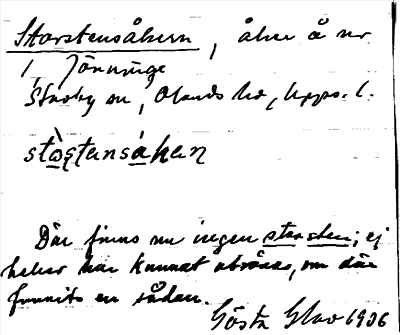 Storstensåkern, åker å nr
1, Jönninge
Stavby sn, Olands hd, Upps. l.
stòstensåkan
Där finns nu ingen storsten; ej
heller har kunnat utrönas, om där
funnits en sådan.
Gösta 1906